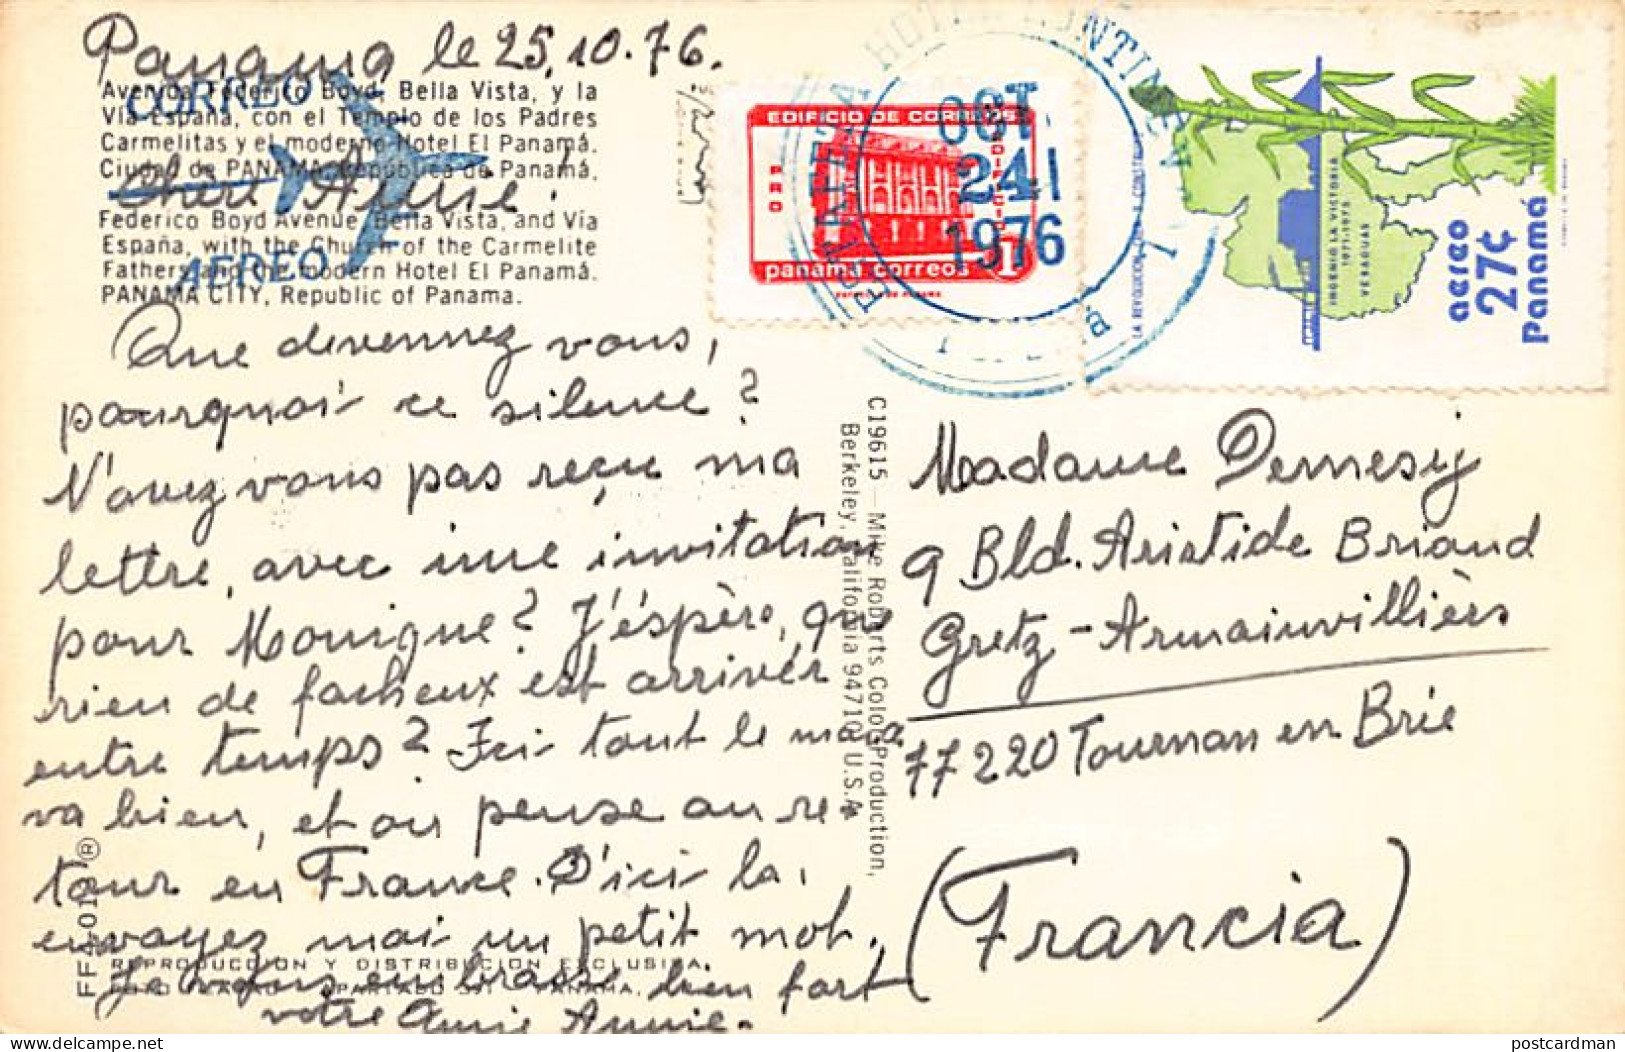 Panama le 25.10.76.
CORREO
AEREO
Avenida Federico Boyd, Bella Vista, y la
Vía España, con el Templo de los Padres
Carmelitas y el moderno Hotel El Panamá.
Ciudad de PANAMA, República de Panamá.
Federico Boyd Avenue, Bella Vista, and Vía
España, with the Church of the Carmelite
Fathers and the modern Hotel El Panamá.
PANAMA CITY, Republic of Panama.
Cheri Annie!
Que devennez vous,
pourquoi ce silence?
N'avez vous pas reçu ma
lettre, avec une invitation
pour Monique? J'éspère, que
rien de facheux est arrivér
entre temps? Ici tout le
va bien, et on pense au re
tour en France. D'ici la,
envoyez moi un petit mot,
Je vous embrasse bien fort
votre Amie Annie.
FF-
REPRODUCCION Y DISTRIBUCION EXCLUSIVA,
APARTADO PANAMA,
C19615 — Mike Roberts Color Production,
Berkeley, California 94710 U.S.A.
EDIFICIO DE CORREOS
PRO
EDIFICIO
panama correos 1
ESTAFETA HOTEL CONTINENTAL
OCT
24
1976
INGENIO LA VICTORIA
1971-1975
VERAGUAS
aereo
27¢
Panamá
Madame Demesij
9 Bld. Aristide Briand
Gretz-Armainvillièrs
77220 Tournan en Brie
(Francia)
www.delcampe.net
postcardman